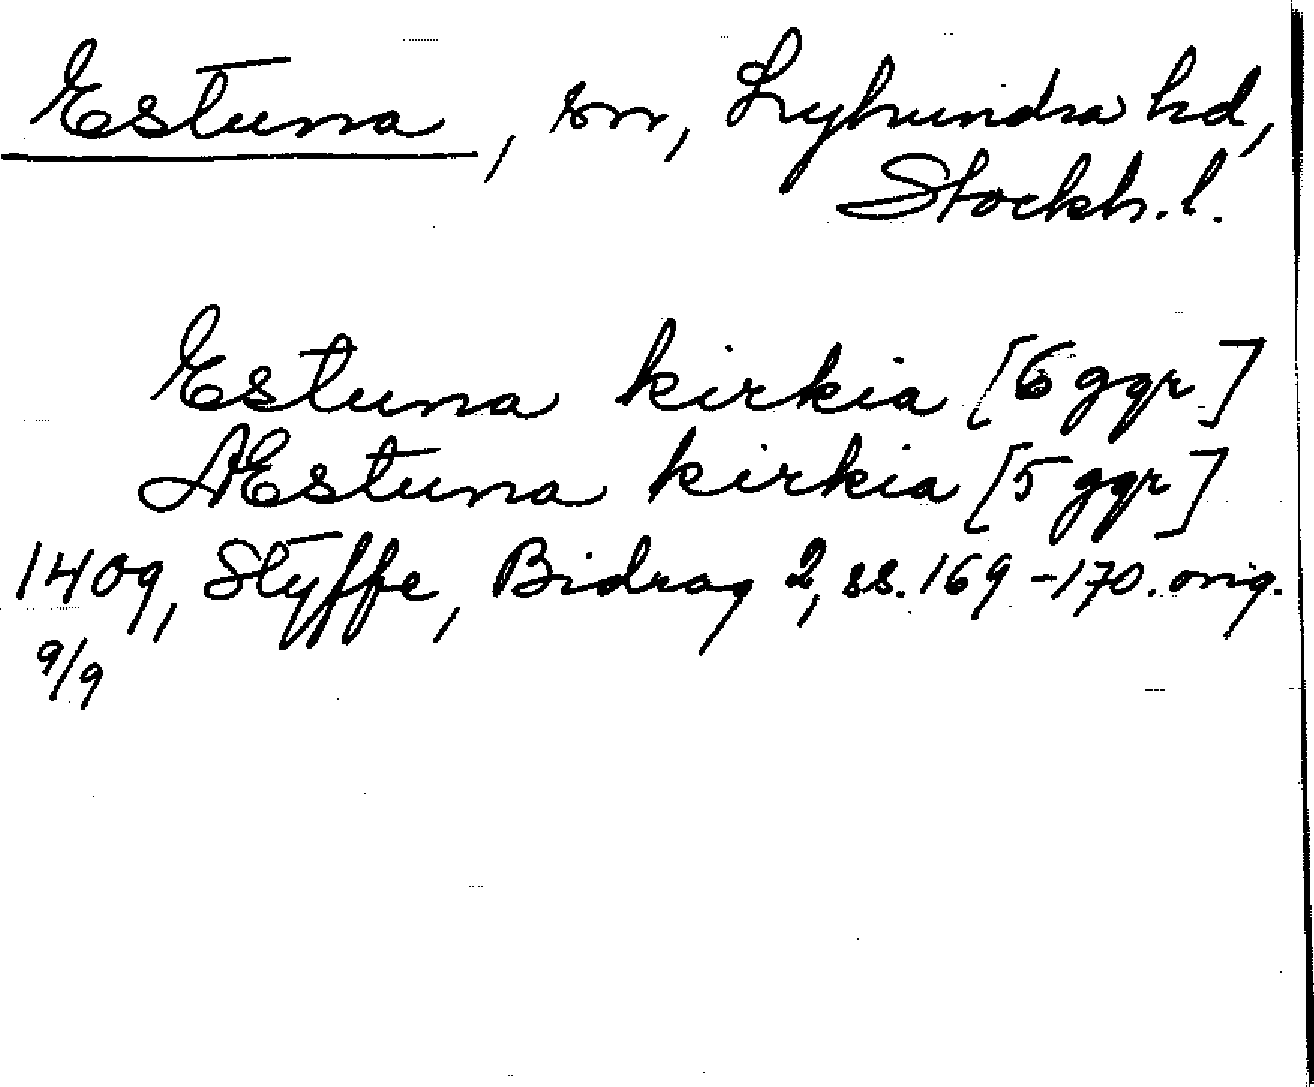 Estuna, sn, Lyhundra hd,
Stockh. l.
Estuna kirkia [6 ggr]
AEstuna kirkia [5 ggr]
1409, Styffe, Bidrag 2, ss. 169-170. orig.
9/9